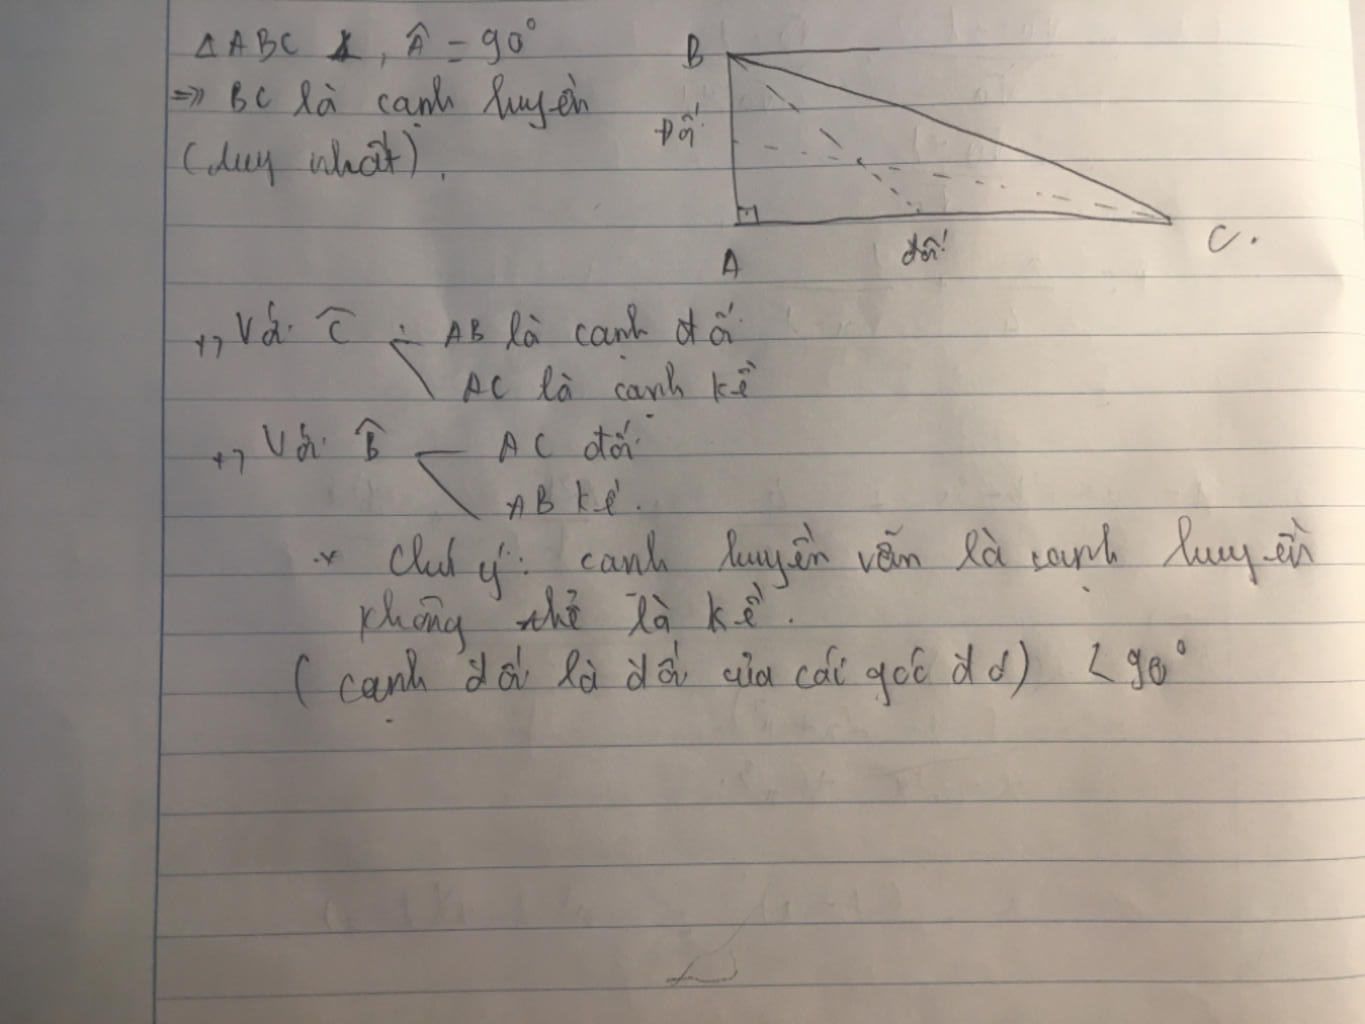 △ABC ⊥, Â = 90°
=> BC là cạnh huyền
(duy nhất).
B
Đối
A
đối
C.
+, Với Ĉ : AB là cạnh đối
AC là cạnh kề
+, Với B̂ AC đối
AB kề.
* Chú ý: cạnh huyền vẫn là cạnh huyền
không thể là kề.
(cạnh đối là đối của các góc đó) < 90°